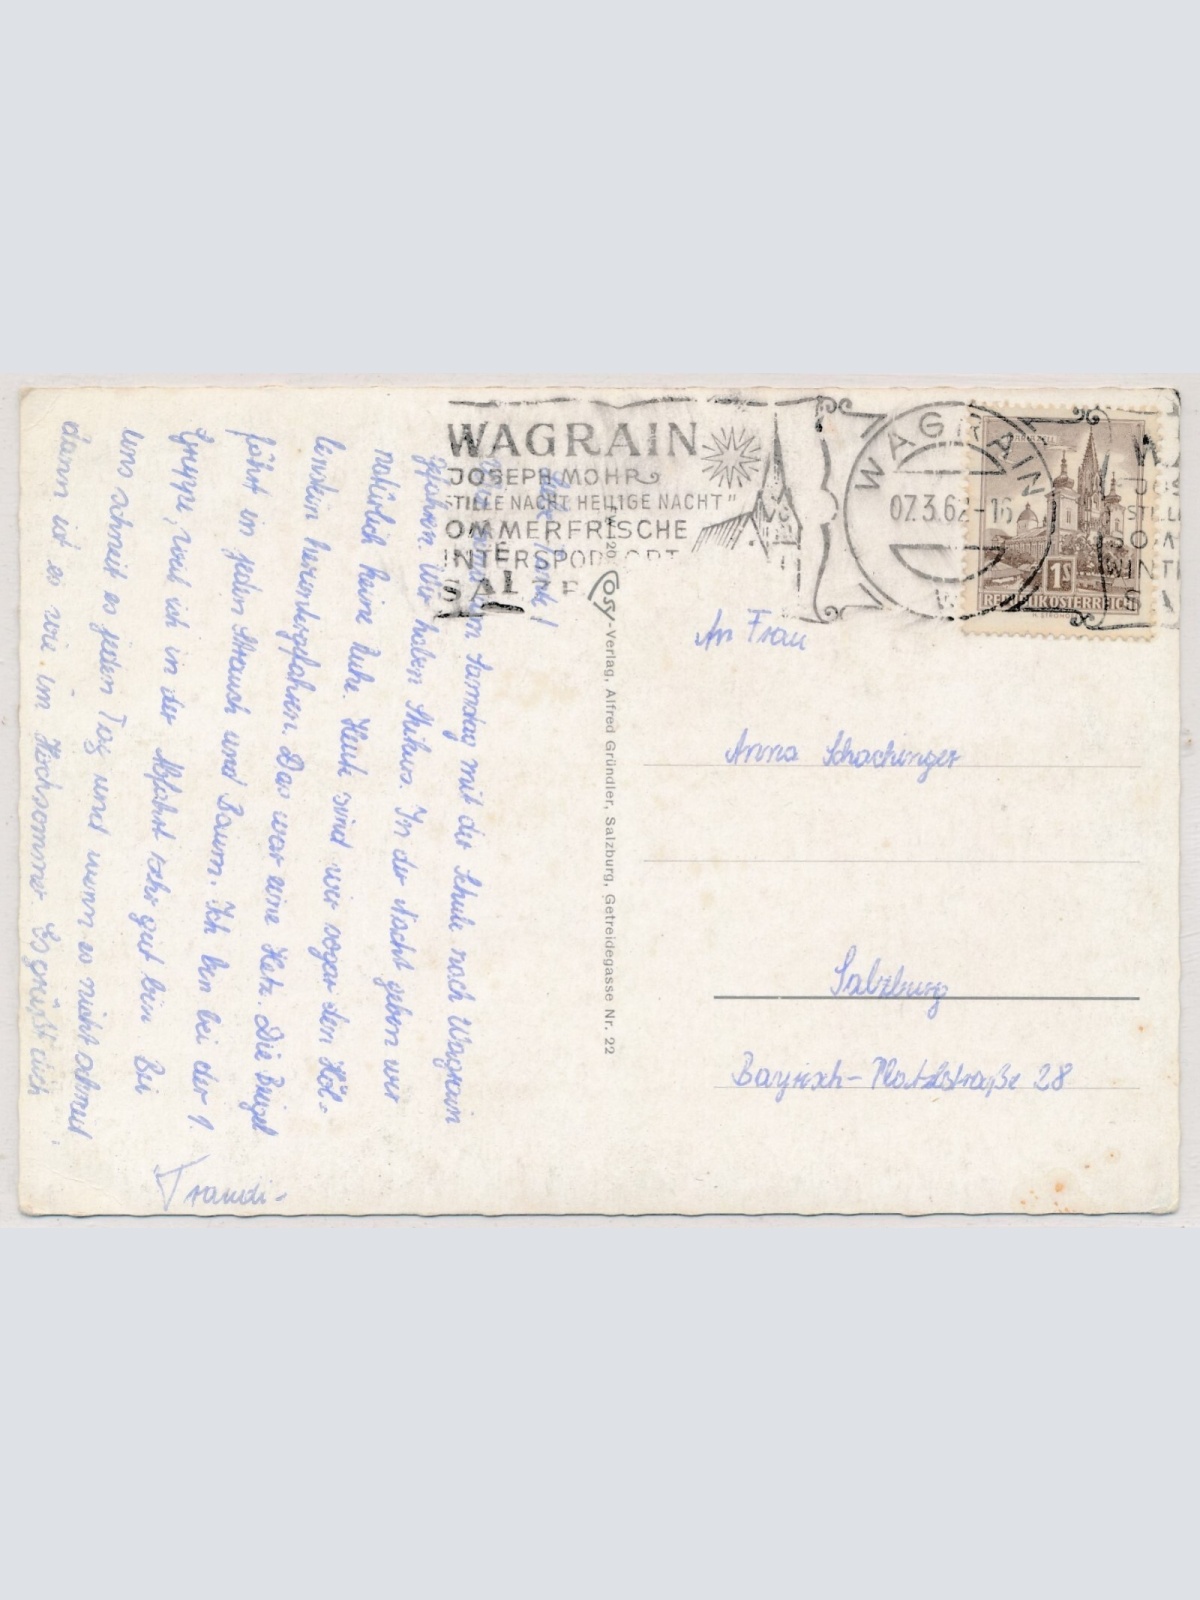 WAGRAIN
JOSEPH MOHR
"STILLE NACHT HEILIGE NACHT"
OMMERFRISCHE
INTERSPO
WAGRAIN
07.3.62-16
1S
REPUBLIK ÖSTERREICH
Cosy-Verlag, Alfred Gründler, Salzburg, Getreidegasse Nr. 22
Samstag mit der Schule nach Wagrain
gefahren. Wir haben Skikurs. In der Nacht geben wir
natürlich keine Ruhe. Heute sind wir sogar den Höl-
lenstein heruntergefahren. Das war eine Hetz. Die Brigel
fährt in jeden Strauch und Baum. Ich bin bei der 1.
Gruppe, weil ich in der Abfahrt sehr gut bin. Bei
uns schneit es jeden Tag und wenn es nicht schneit,
dann ist es wie im Hochsommer. Es grüßt dich
Traudi-
An Frau
Anna Schachinger
Salzburg
Bayrisch-Platzlstraße 28